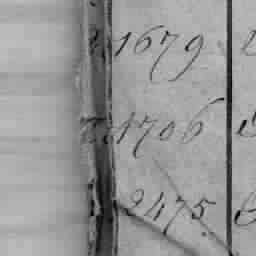 1679
1706
2475